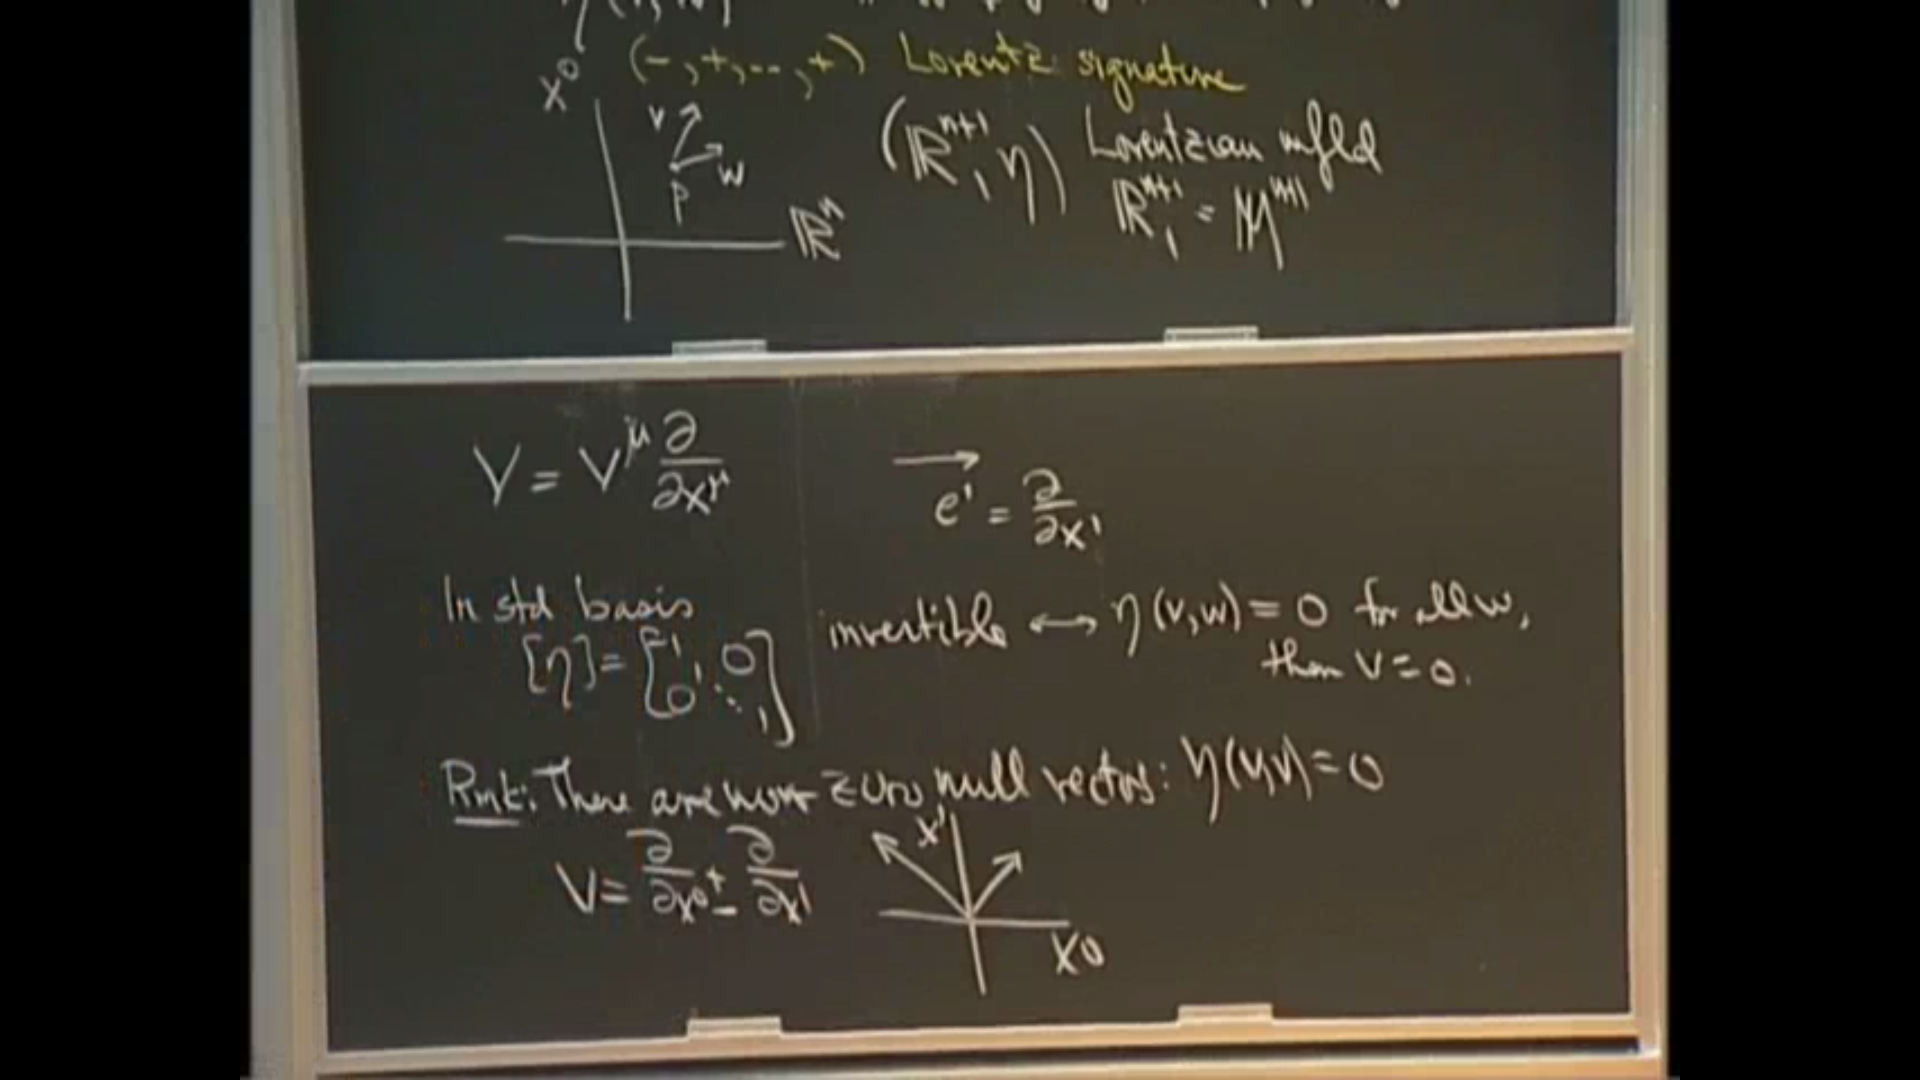 η(
x⁰ (-,+,..,+) Lorentz signature
v
w
p
ℝⁿ
(ℝⁿ⁺¹₁, η) Lorentzian mfld
ℝⁿ⁺¹₁ = 𝕄ⁿ⁺¹
V = V^μ ∂/∂x^μ
e¹ = ∂/∂x¹
In std basis
[η] = [-1, 1, 0; 0 ⋱ 1] invertible ⟷ η(v,w) = 0 for all w,
then v = 0.
Rmk: There are non zero null vectors: η(v,v) = 0
V = ∂/∂x⁰ ± ∂/∂x¹
x¹
x⁰